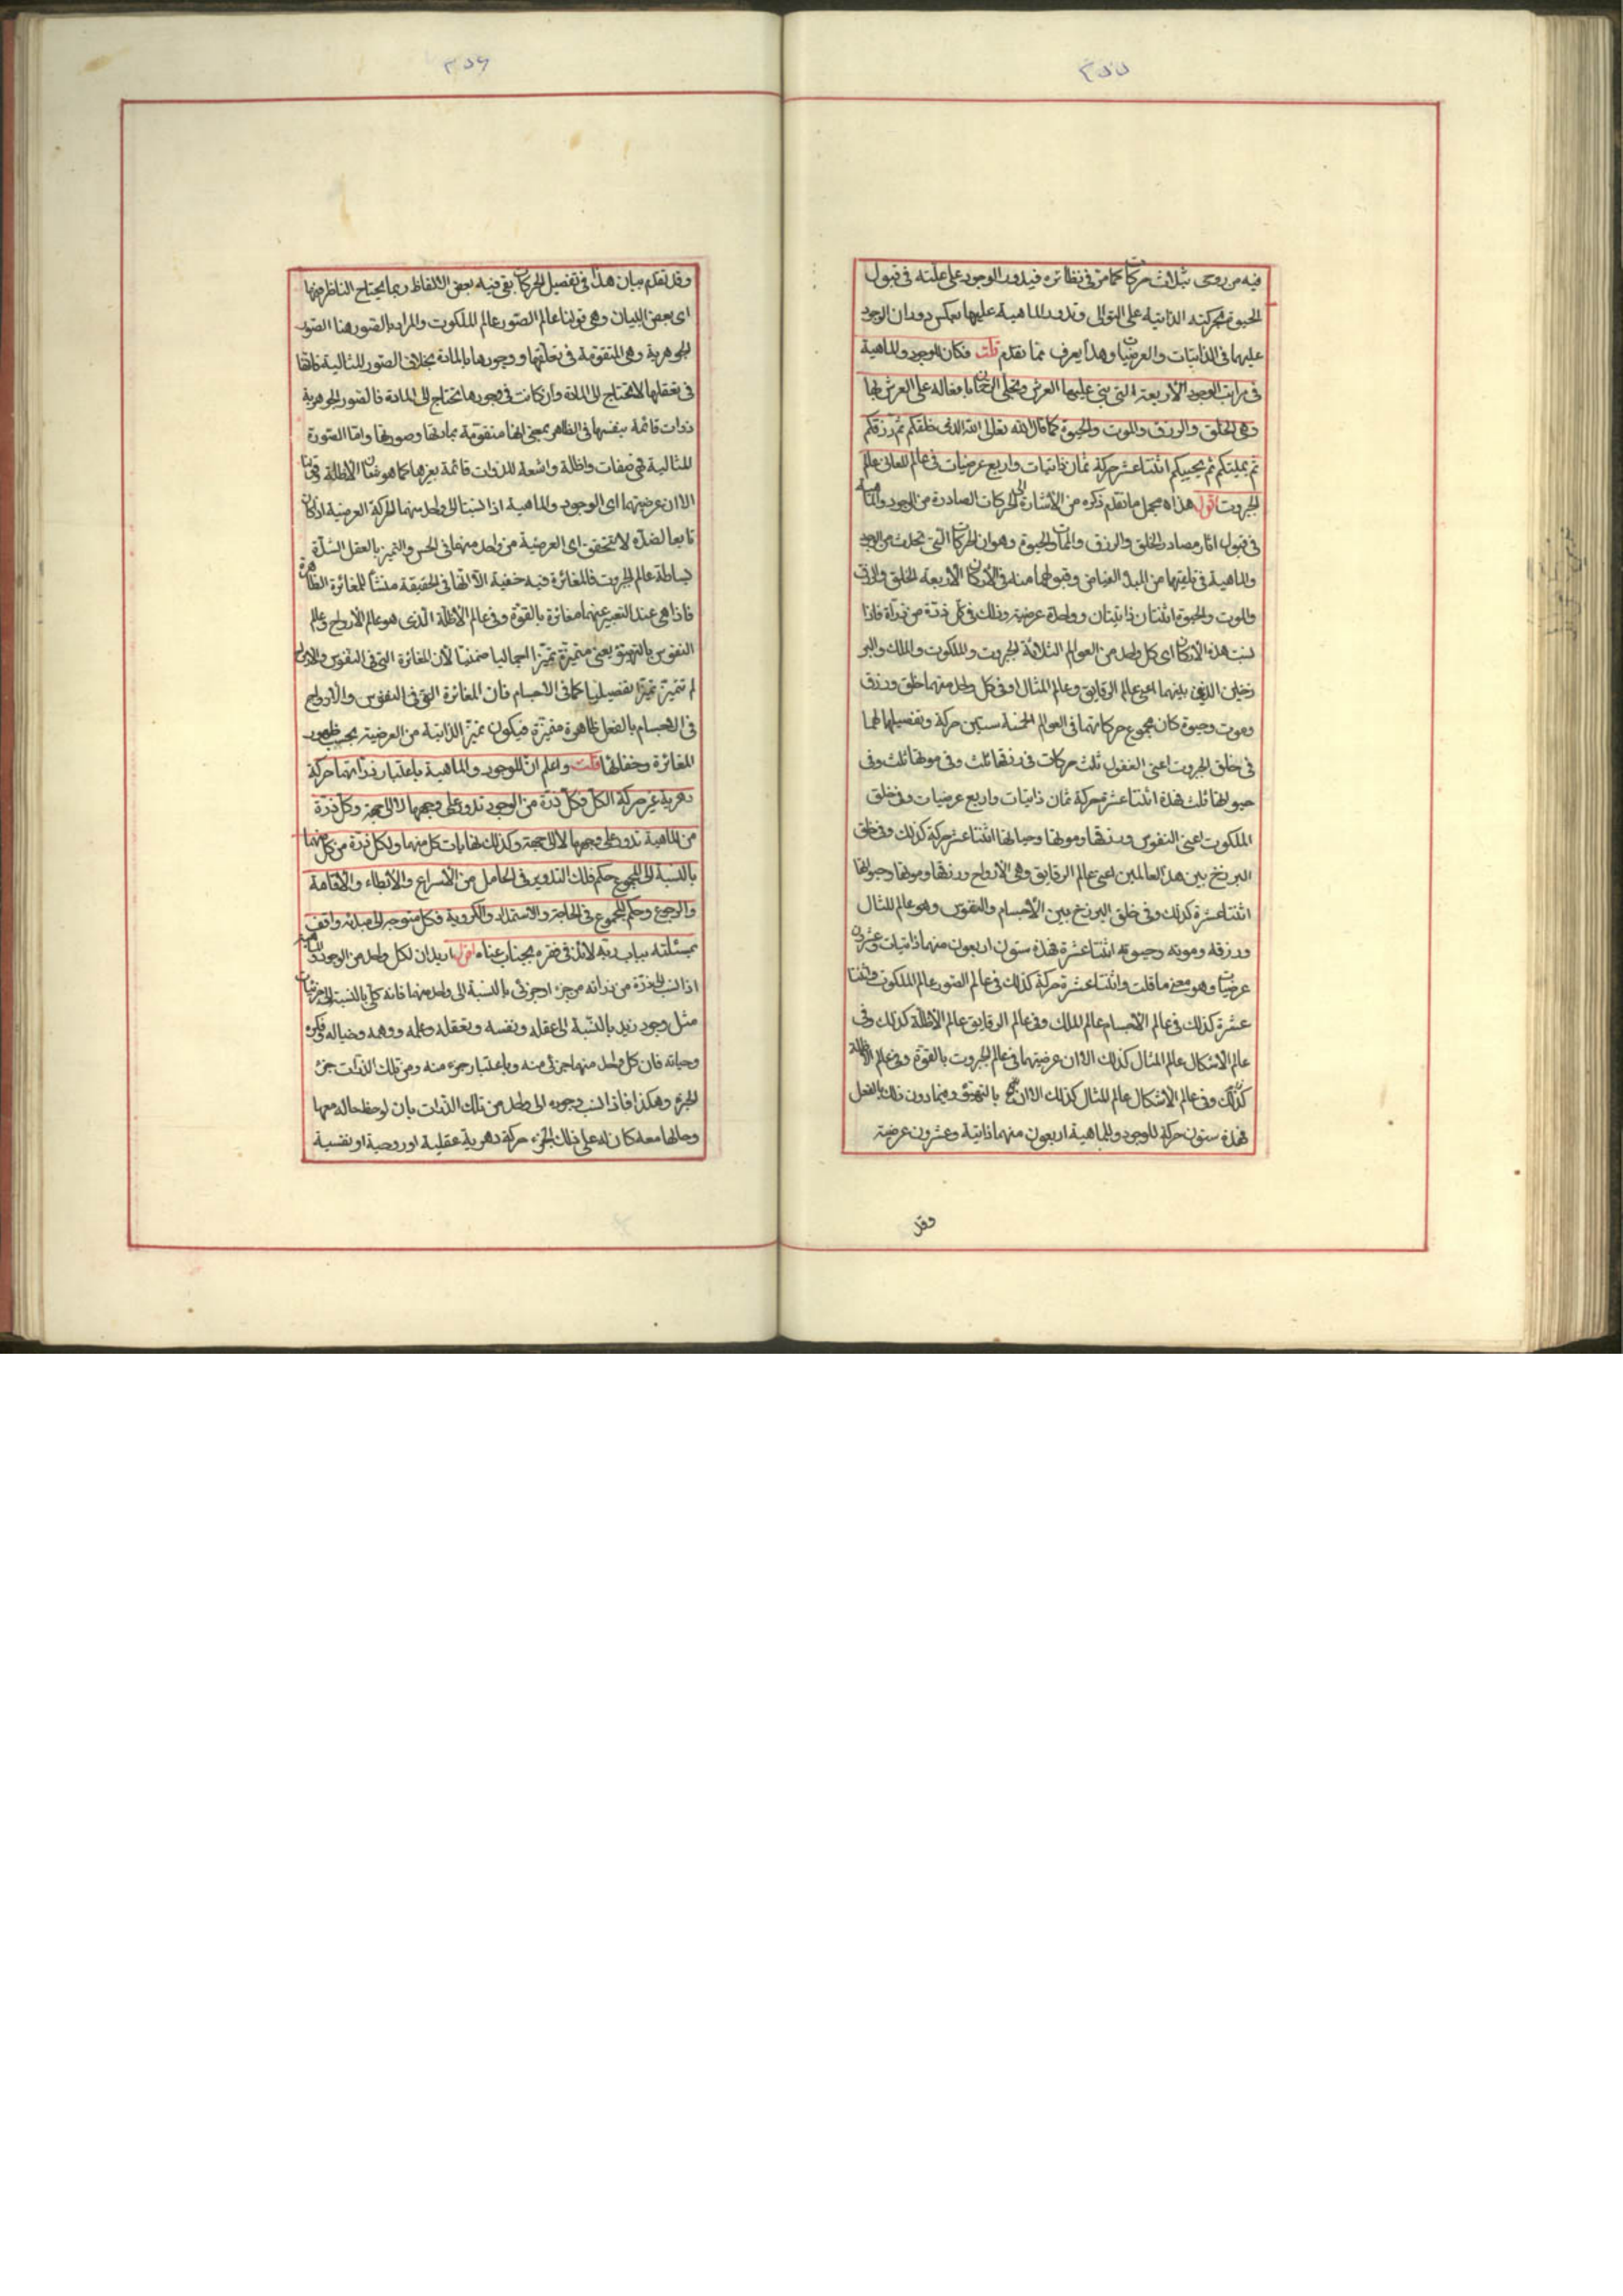 ٣٥٥
فيه من روحى بثلاث حركات كما مر فى نظائره فيدور الوجود على علته فى قبول
الحيوة بحركته الذاتية على التوالى وتدور الماهية عليها بعكس دوران الوجود
عليها فى الذاتيات والعرضيات وهذا يعرف مما تقدم قلت فكان للوجود والماهية
فى مراتب الوجود الأربعة التى بنى عليها العرش وتجلى الرحمن بافعاله على العرش بها
وهى الخلق والرزق والموت والحيوة كما قال الله تعالى الله الذى خلقكم ثم رزقكم
ثم يميتكم ثم يحييكم اثنتا عشر حركة ثمان ذاتيات واربع عرضيات فى عالم المعانى عالم
الجبروت اقول هذا مجمل ما تقدم ذكره من الأشارة الى الحركات الصادرة من الوجود والماهية
فى قبول اثار مصادر الخلق والرزق والممات والحيوة وهو ان الحركات التى تحدث من الوجود
والماهية فى تلقيهما من المبدأ الفياض وقبولهما منه فى الأركان الأربعة الخلق والرزق
والموت والحيوة اثنتان ذاتيتان وواحدة عرضية وذلك فى كل ذرة من ذراته فاذا
نسبت هذه الأركان اى كل واحد من العوالم الثلاثة الجبروت والملكوت والملك والبر
زخين الذين بينهما اعنى عالم الرقايق وعالم المثال وفى كل واحد منهما خلق ورزق
وموت وحيوة كان مجموع حركاتهما فى العوالم الخمسة ستين حركة وتفصيلها لهما
فى خلق الجبروت اعنى العقول ثلث حركات فى رزقها ثلث وفى موتها ثلث وفى
حيوتها ثلث فهذه اثنتا عشرة حركة ثمان ذاتيات واربع عرضيات وفى خلق
الملكوت اعنى النفوس ورزقها وموتها وحياتها اثنتا عشر حركة كذلك وفى خلق
البرزخ بين هذ العالمين اعنى عالم الرقايق وهى الأرواح ورزقها وموتها وحيوتها
اثنتا عشرة كذلك وفى خلق البرزخ بين الأجسام والنفوس وهو عالم المثال
ورزقه وموته وحيوته اثنتا عشرة فهذه ستون اربعون منها ذاتيات وعشرون
عرضيات وهو معنى ما قلت واثنتا عشرة حركة كذلك فى عالم الصور عالم الملكوت واثنتا
عشرة كذلك فى عالم الأجسام عالم الملك وفى عالم الرقايق عالم الأظلة كذلك وفى
عالم الاشكال عالم المثال كذلك الا ان عرضيتهما فى عالم الجبروت بالقوة وفى عالم الأظلة
كذلك وفى عالم الأشكال عالم المثال كذلك الا ان بالتهيؤ وفيما دون ذلك بالفعل
فهذه ستون حركة للوجود والماهية اربعون منها ذاتية وعشرون عرضية
وقد
٣٥٦
وقد تقدم بيان هذا فى تفصيل الحركات بقى فيه بعض الألفاظ ربما يحتاج الناظر فيها
اى بعض البيان وهى قولنا عالم الصور عالم الملكوت والمراد بالصور هنا الصور
الجوهرية وهى المتقومة فى تعلقها ووجودها بالمادة بخلاف الصور المثالية فانها
فى تعقلها لا تحتاج الى المادة وان كانت فى وجودها تحتاج الى المادة فالصور الجوهرية
ذوات قائمة بنفسها فى الظاهر بمعنى انها متقومة بمادتها وصورتها واما الصورة
المثالية فهى صفات واظلة واشعة للذوات قائمة بغيرها كما هو شان الأظلة وقولنا
الا ان عرضيتهما اى الوجود والماهية اذا نسبنا الى واحد منهما الحركة العرضية اذ كان
تابعا لضده لا تتحقق اى العرضية من واحد منهما فى الحس والتميز بالعقل لشدة
بساطة عالم الجبروت فالمغائرة فيه خفية الا انها فى الحقيقة منشأ للمغائرة الظاهرة
فاذا هى عند التعبير عنهما مغائرة بالقوة وفى عالم الأظلة الذى هو عالم الأرواح وعالم
النفوس بالتهيؤ يعنى متميزة تميزا اجماليا ضمنيا لأن المغائرة التى فى النفوس والارواح
لم تتميز تميزا تفصيليا كما فى الأجسام فان المغائرة التى فى النفوس والأرواح
فى الاجسام بالفعل ظاهرة متميزة فيكون تميز الذاتية من العرضية بحسب ظهور
المغائرة وخفائها قلت واعلم ان للوجود والماهية باعتبار ذراتهما حركة
دهرية غير حركة الكل فكل ذرة من الوجود تدور على وجهها لا الى جهة وكل ذرة
من الماهية تدور على وجهها لا الى جهة وكذلك نهايات كل منهما ولكل ذرة من كل منهما
بالنسبة الى المجموع حكم فلك التدوير فى الحامل من الأسراع والأبطاء والأقامة
والرجوع وحكم المجموع فى الحاجة والاستمداد والكروية فكل متوجه الى مبدئه واقف
بمسئلته بباب ربه لائذ فى فقره بجناب غناه اقول اريد ان لكل واحد من الوجود والماهية
اذا نسب الى ذرة من ذراته من جزء او جزئى بالنسبة الى واحد منهما فانه كلى بالنسبة الى جزئياته
مثل وجود زيد بالنسبة الى عقله ونفسه وتعقله وعلمه ووهمه وخياله وفكره
وحياته فان كل واحد منها جزئى منه وباعتبار جزء منه ومن تلك الذرات جزء
الجزء وهكذا فاذا نسب وجوده الى واحد من تلك الذرات بان لوحظ حاله معها
وحالها معه كان له على ذلك الجزء حركة دهرية عقلية او روحية او نفسية